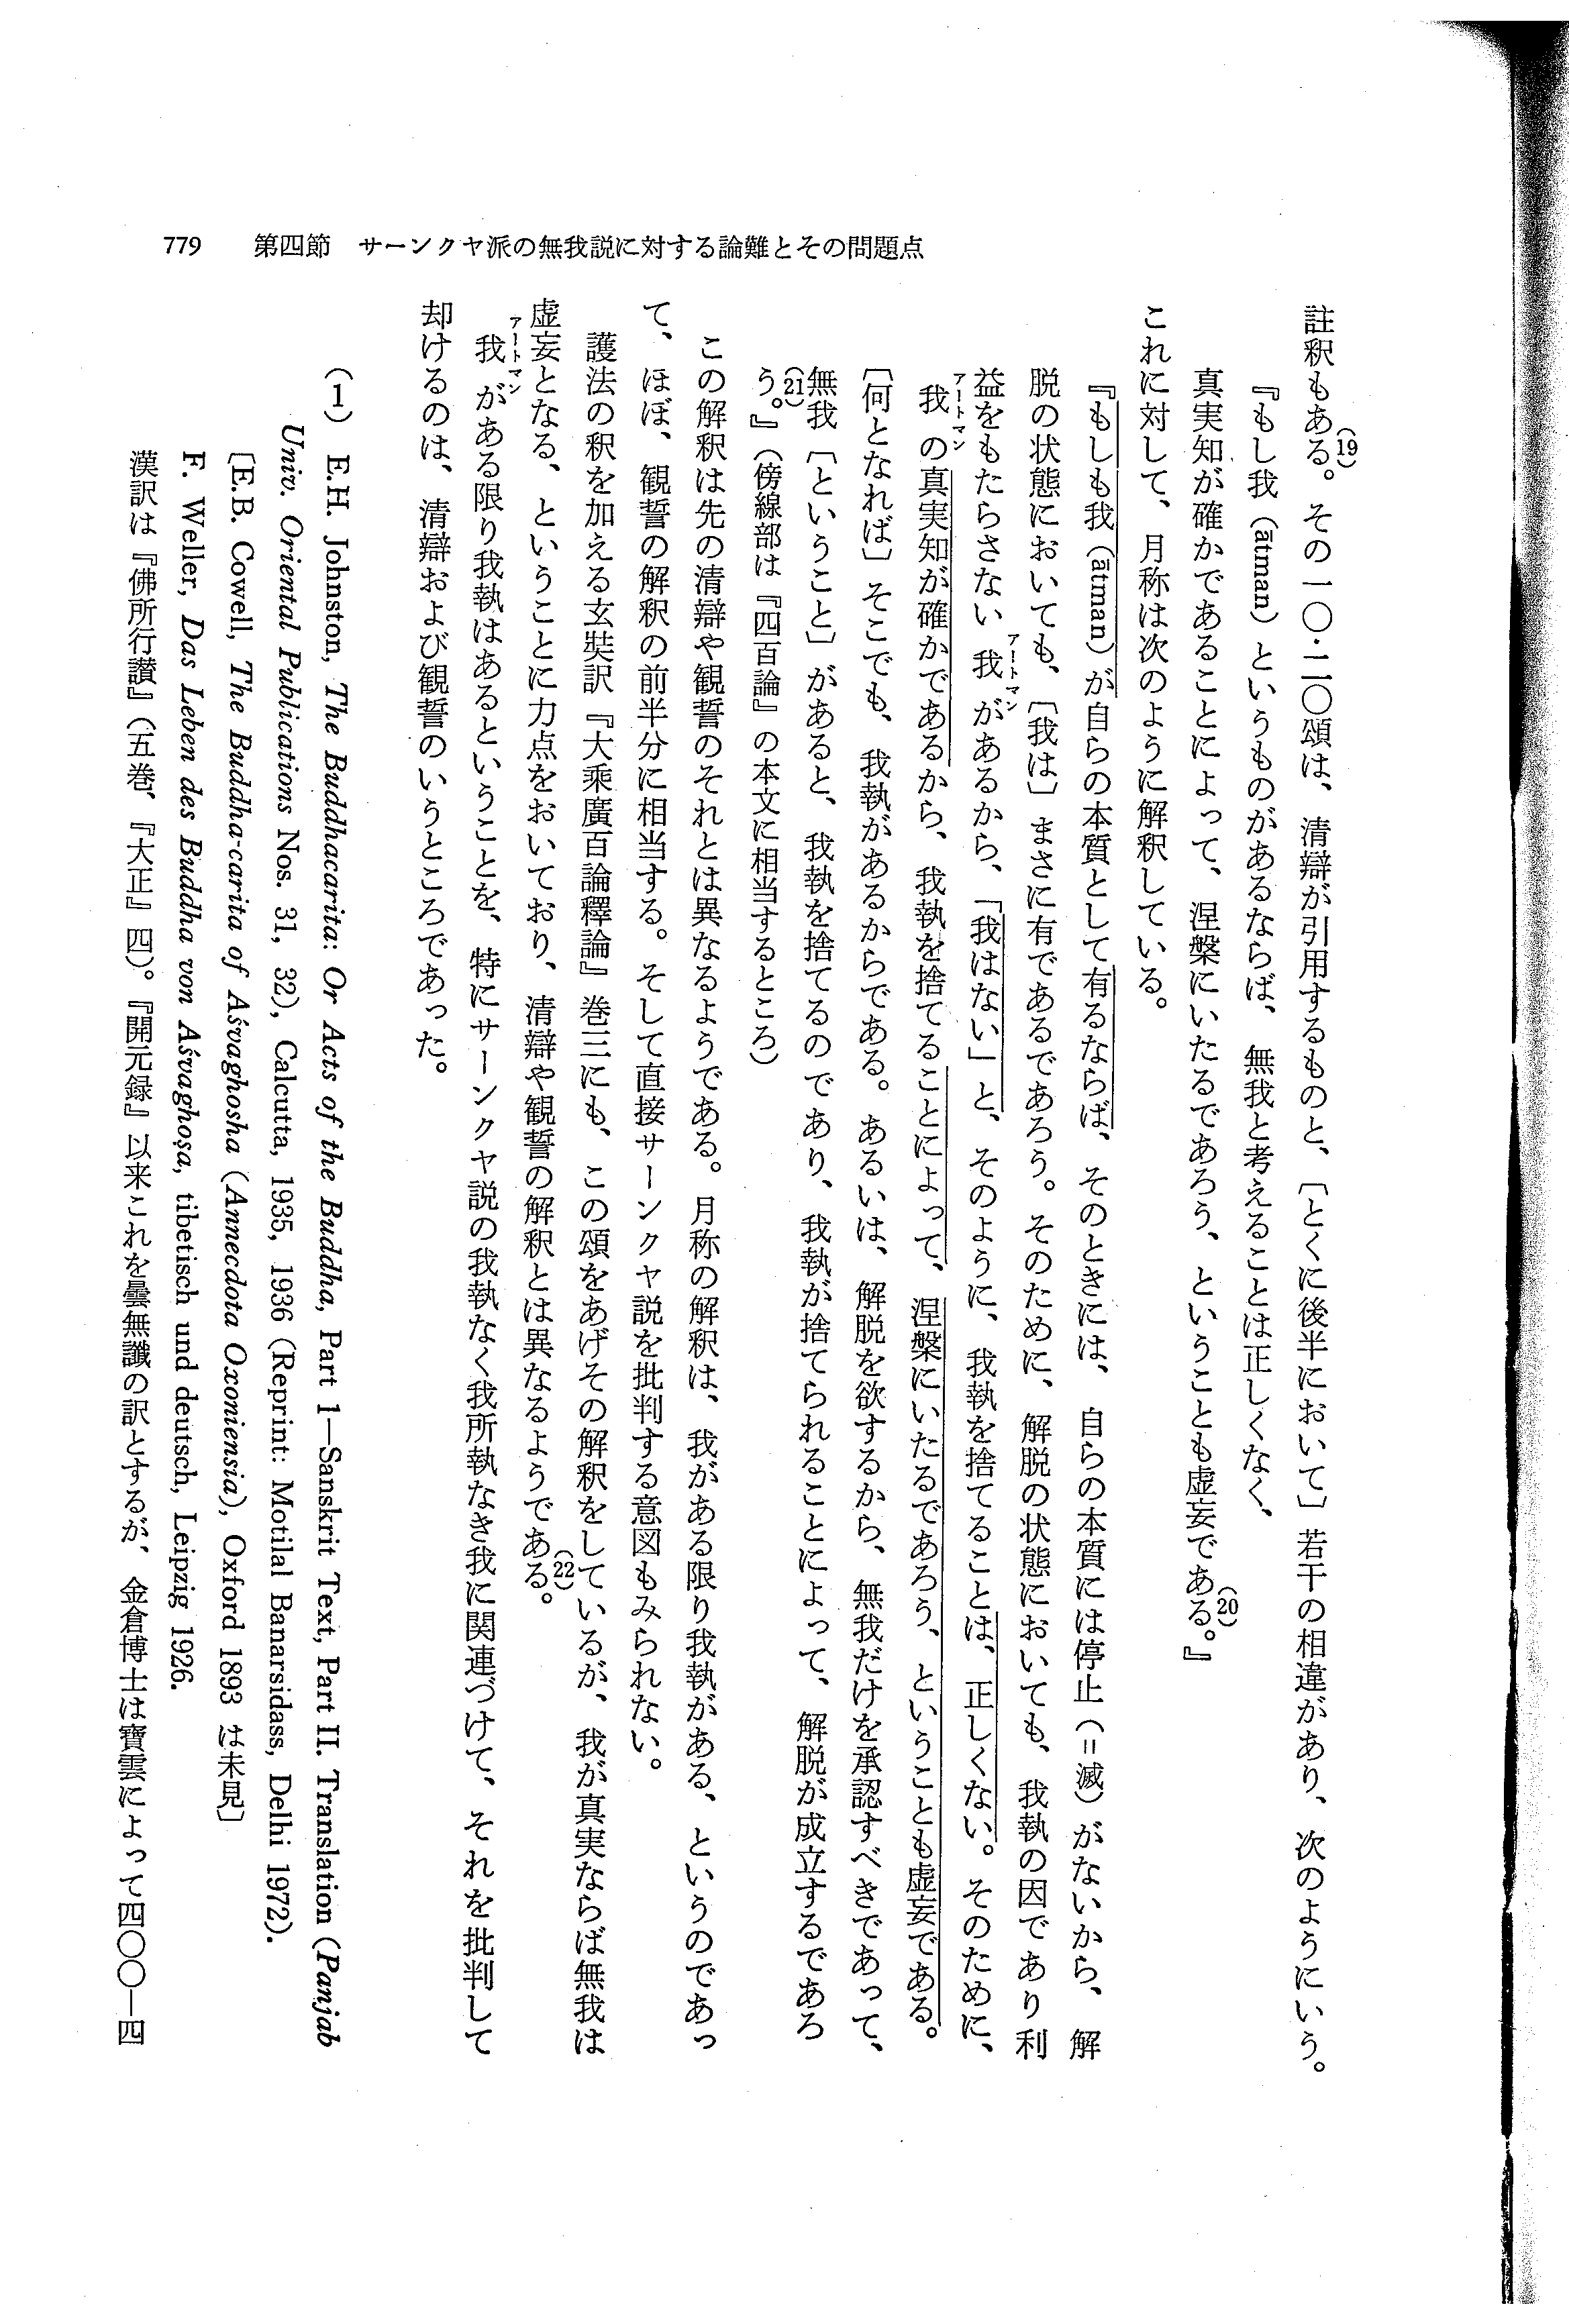 779　第四節　サーンクヤ派の無我説に対する論難とその問題点
註釈もある。(19)その一〇・二〇頌は、清辯が引用するものと、〔とくに後半において〕若干の相違があり、次のようにいう。
『もし我（ātman）というものがあるならば、無我と考えることは正しくなく、
真実知が確かであることによって、涅槃にいたるであろう、ということも虚妄である。(20)』
これに対して、月称は次のように解釈している。
『もしも我（ātman）が自らの本質として有るならば、そのときには、自らの本質には停止（＝滅）がないから、解
脱の状態においても、〔我は〕まさに有であるであろう。そのために、解脱の状態においても、我執の因であり利
益をもたらさない我（アートマン）があるから、「我はない」と、そのように、我執を捨てることは、正しくない。そのために、
我（アートマン）の真実知が確かであるから、我執を捨てることによって、涅槃にいたるであろう、ということも虚妄である。
〔何となれば〕そこでも、我執があるからである。あるいは、解脱を欲するから、無我だけを承認すべきであって、
無我〔ということ〕があると、我執を捨てるのであり、我執が捨てられることによって、解脱が成立するであろ
う。(21)』（傍線部は『四百論』の本文に相当するところ）
この解釈は先の清辯や観誓のそれとは異なるようである。月称の解釈は、我がある限り我執がある、というのであっ
て、ほぼ、観誓の解釈の前半分に相当する。そして直接サーンクヤ説を批判する意図もみられない。
護法の釈を加える玄奘訳『大乗廣百論釋論』巻三にも、この頌をあげその解釈をしているが、我が真実ならば無我は
虚妄となる、ということに力点をおいており、清辯や観誓の解釈とは異なるようである。(22)
我（アートマン）がある限り我執はあるということを、特にサーンクヤ説の我執なく我所執なき我に関連づけて、それを批判して
却けるのは、清辯および観誓のいうところであった。
（1）　E.H. Johnston, The Buddhacarita: Or Acts of the Buddha, Part 1—Sanskrit Text, Part II. Translation (Panjab
Univ. Oriental Publications Nos. 31, 32), Calcutta, 1935, 1936 (Reprint: Motilal Banarsidass, Delhi 1972).
〔E.B. Cowell, The Buddha-carita of Aśvaghosha (Annecdota Oxoniensia), Oxford 1893 は未見〕
F. Weller, Das Leben des Buddha von Aśvaghoṣa, tibetisch und deutsch, Leipzig 1926.
漢訳は『佛所行讃』（五巻、『大正』四）。『開元録』以来これを曇無讖の訳とするが、金倉博士は寶雲によって四〇〇—四